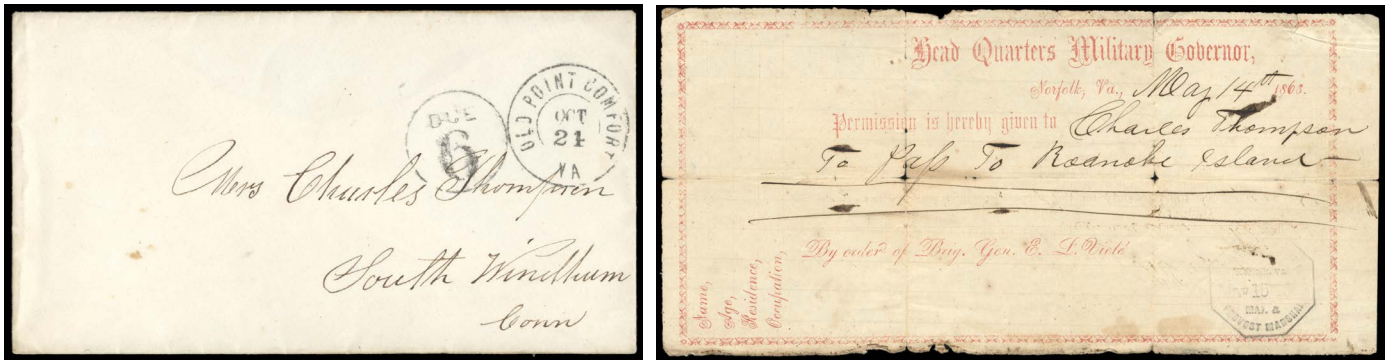 OLD POINT COMFORT
OCT
21
VA
DUE
6
Mrs Charles Thompson
South Windham
Conn
Head Quarters Military Governor,
Norfolk, Va., May 14th 1863.
Permission is hereby given to Charles Thompson
To Pass To Roanoke Island
By order of Brig. Gen. E. L. Viele
Name,
Age,
Residence,
Occupation,
15
MAJ. &
PROVOST MARSHAL